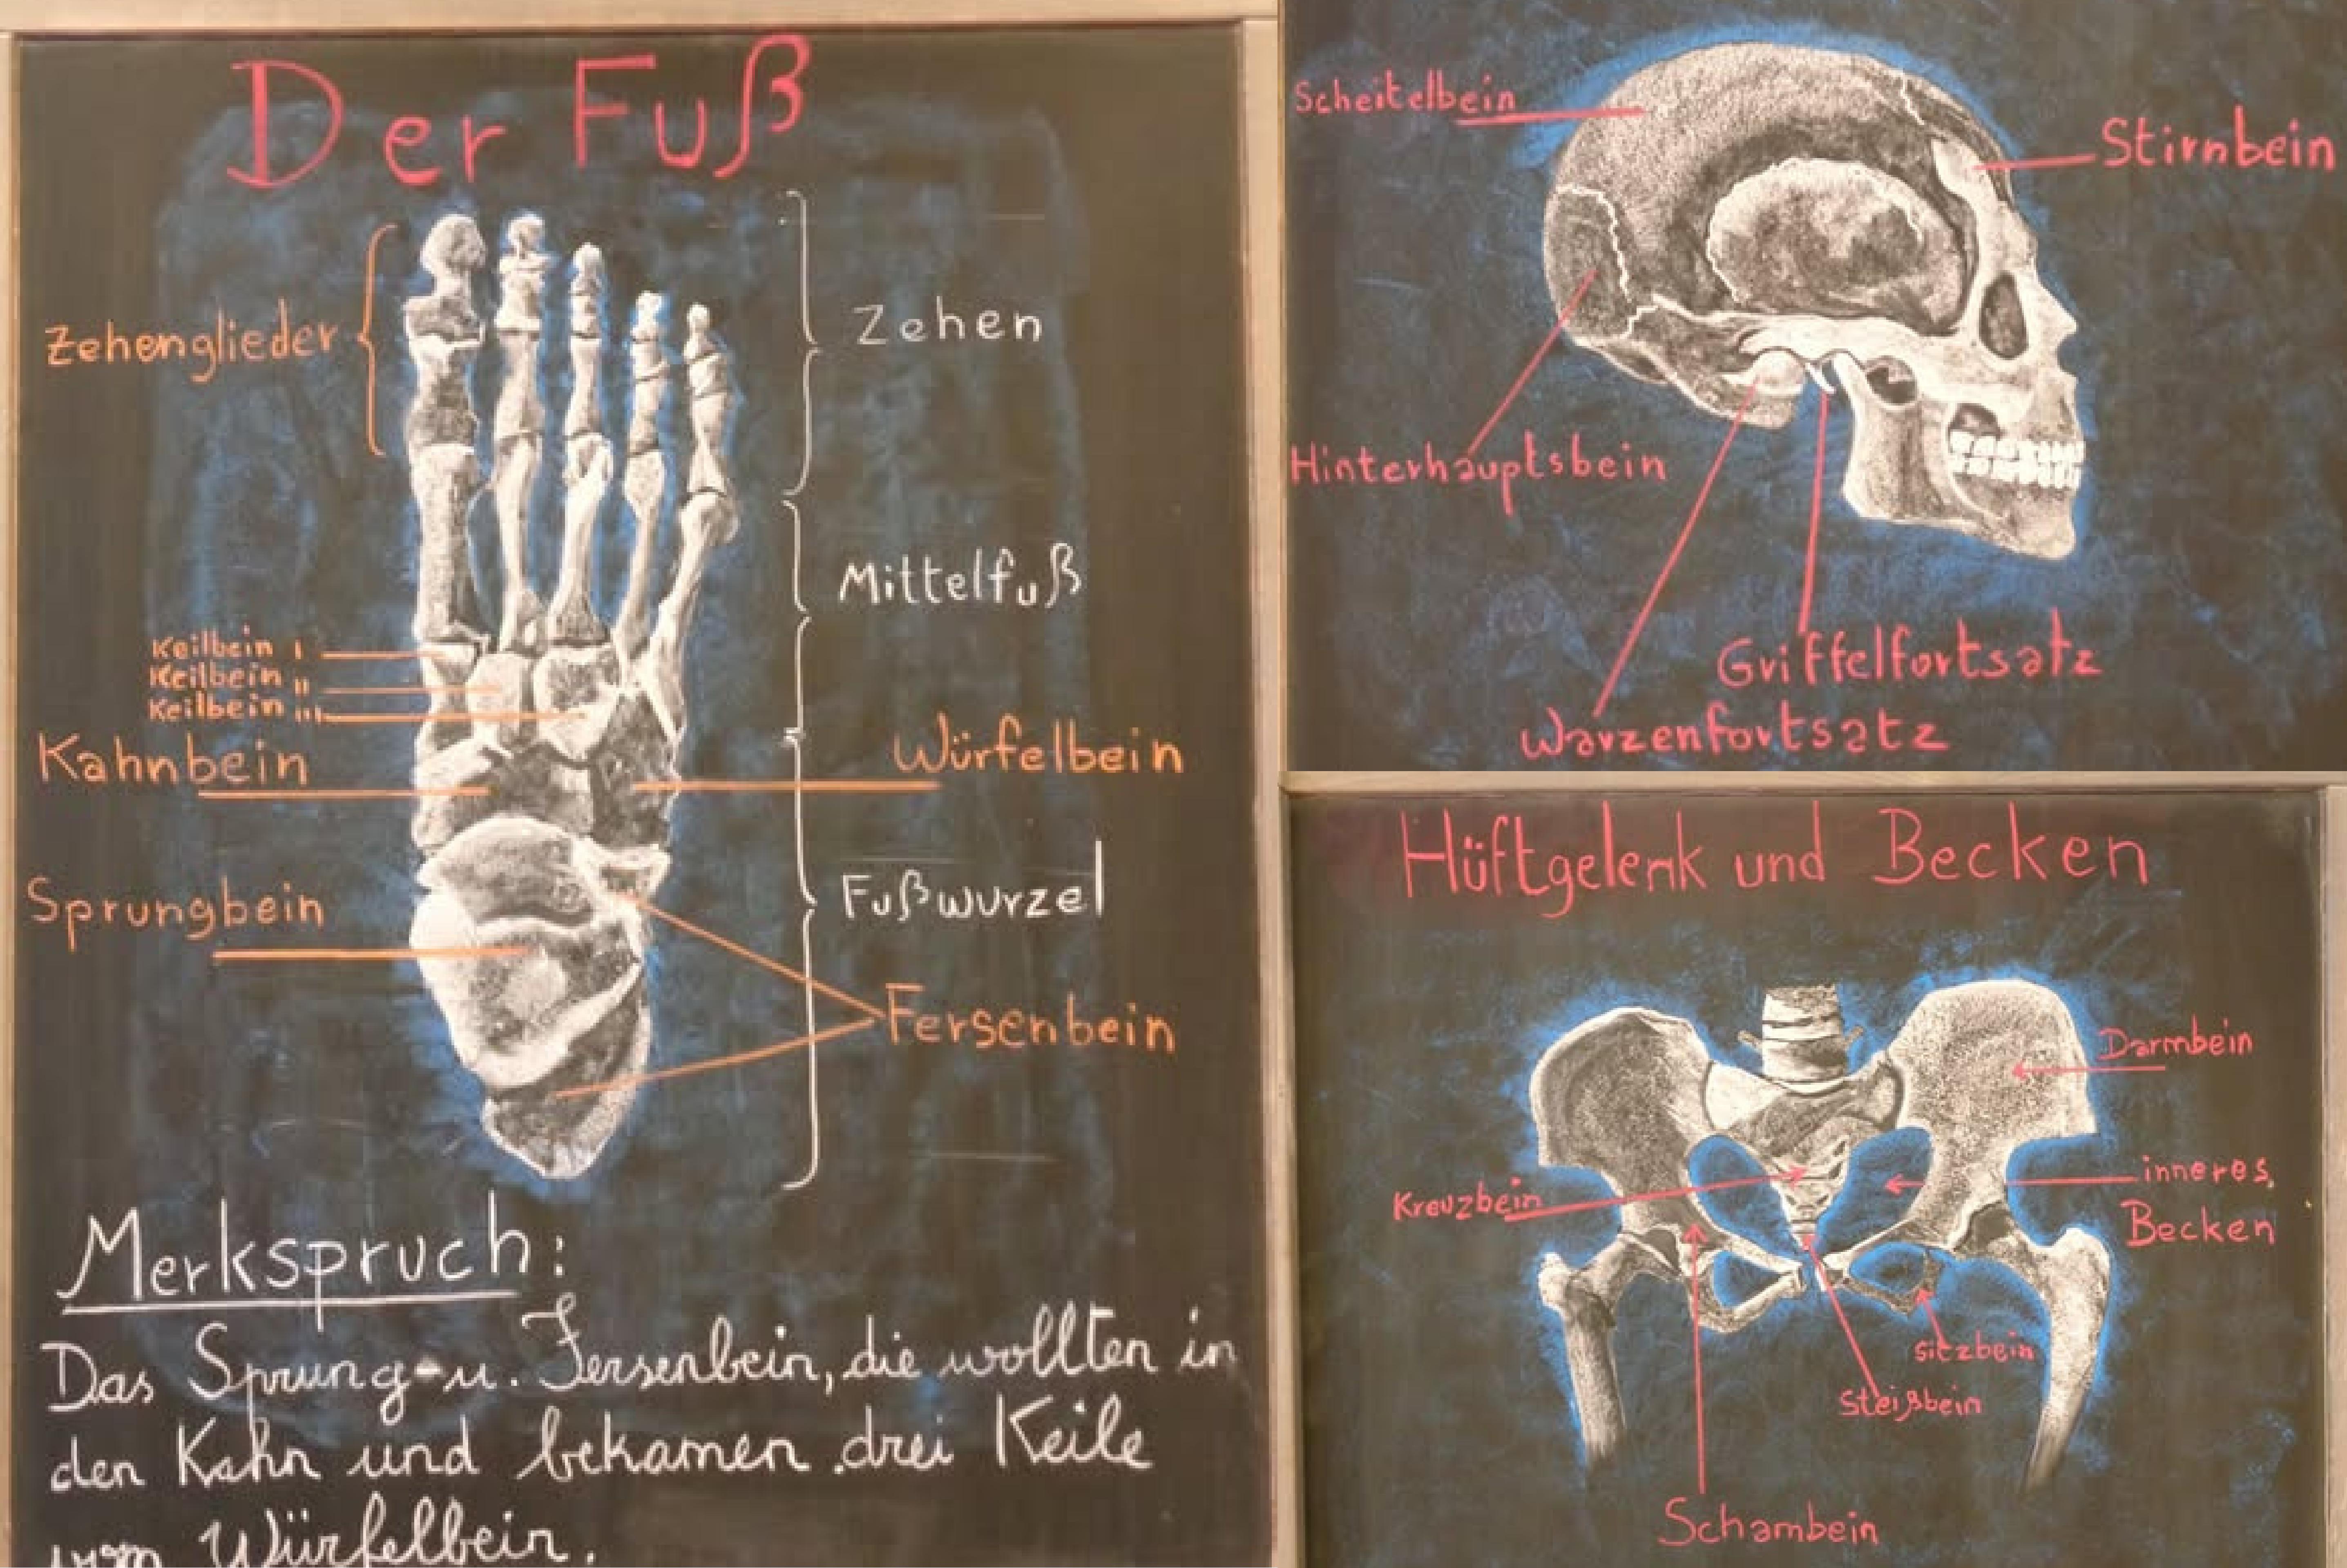 Der Fuß
Zehenglieder
Zehen
Mittelfuß
Keilbein I
Keilbein II
Keilbein III
Kahnbein
Würfelbein
Sprungbein
Fußwurzel
Fersenbein
Merkspruch:
Das Sprung-u. Fersenbein, die wollten in
den Kahn und bekamen drei Keile
vom Würfelbein.
Scheitelbein
Stirnbein
Hinterhauptsbein
Griffelfortsatz
Warzenfortsatz
Hüftgelenk und Becken
Darmbein
Kreuzbein
inneres
Becken
sitzbein
Steißbein
Schambein